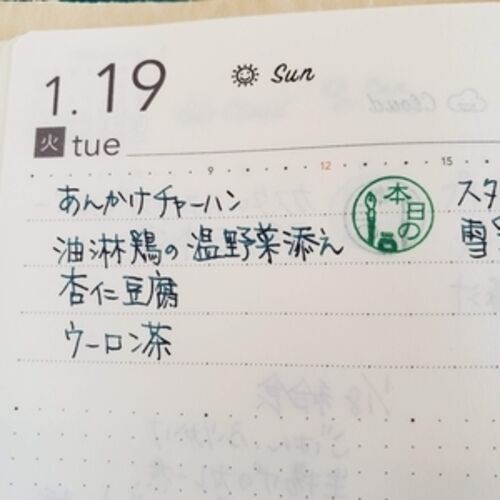 1.19
Sun
火 tue
9 12 15
あんかけチャーハン
油淋鶏の温野菜添え
杏仁豆腐
ウーロン茶
本日の
スタ
雪